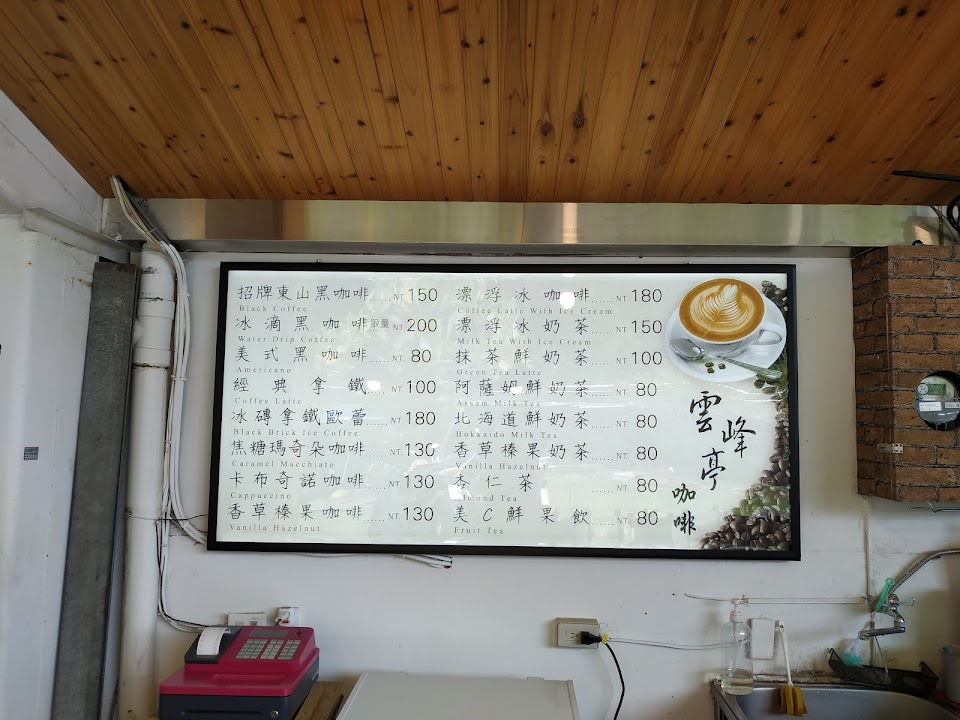 招牌東山黑咖啡......NT 150
Black Coffee
冰滴黑咖啡限量 NT 200
Water Drip Coffee
美式黑咖啡......NT 80
Americano
經典拿鐵......NT 100
Coffee Latte
冰磚拿鐵歐蕾......NT 180
Black Brick Ice Coffee
焦糖瑪奇朵咖啡......NT 130
Caramel Macchiato
卡布奇諾咖啡......NT 130
Cappuccino
香草榛果咖啡......NT 130
Vanilla Hazelnut
漂浮冰咖啡......NT 180
Coffee Latte With Ice Cream
漂浮冰奶茶......NT 150
Milk Tea With Ice Cream
抹茶鮮奶茶......NT 100
Green Tea Latte
阿薩姆鮮奶茶......NT 80
Assam Milk Tea
北海道鮮奶茶......NT 80
Hokkaido Milk Tea
香草榛果奶茶......NT 80
Vanilla Hazelnut
杏仁茶......NT 80
Almond Tea
美C鮮果飲......NT 80
Fruit Tea
雲峰亭
咖啡